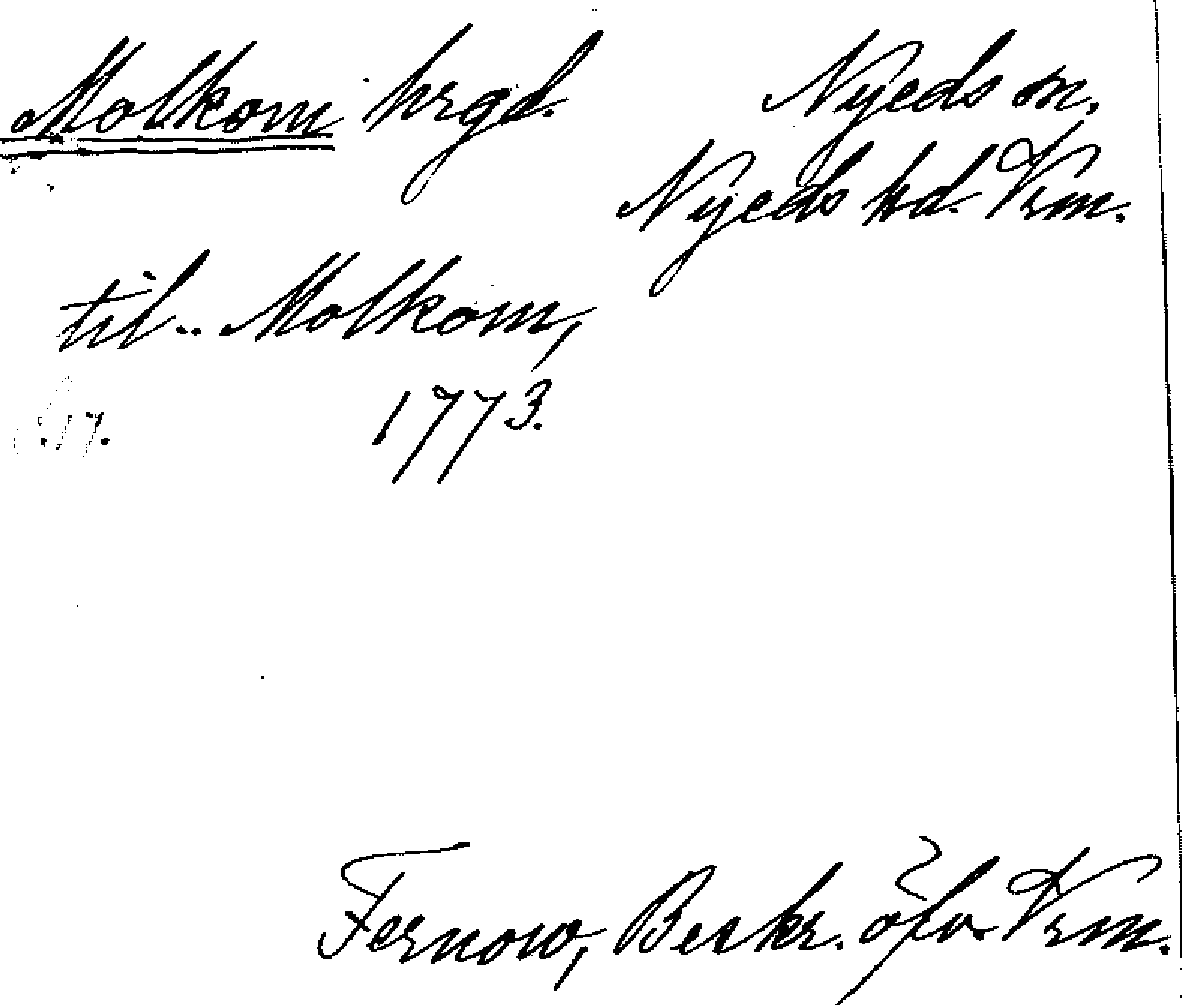 Molkom hrgd. Nyeds sn.
Nyeds hd. Vrm.
til.. Molkom,
1773.
Fernow, Beskr. öfv. Vrm.